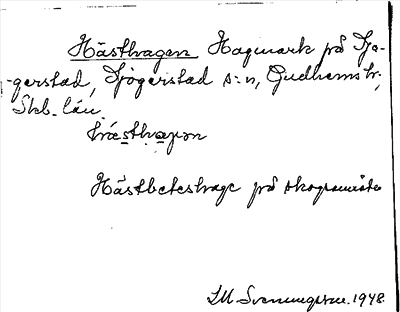 Hästhagen Hagmark på Djo-
-gerstad, Djögerstad s:n, Gudhems hr,
Skb. län.
hæsthagən
Hästbeteshage på skogsområde
S.M. Svenungsson. 1948.